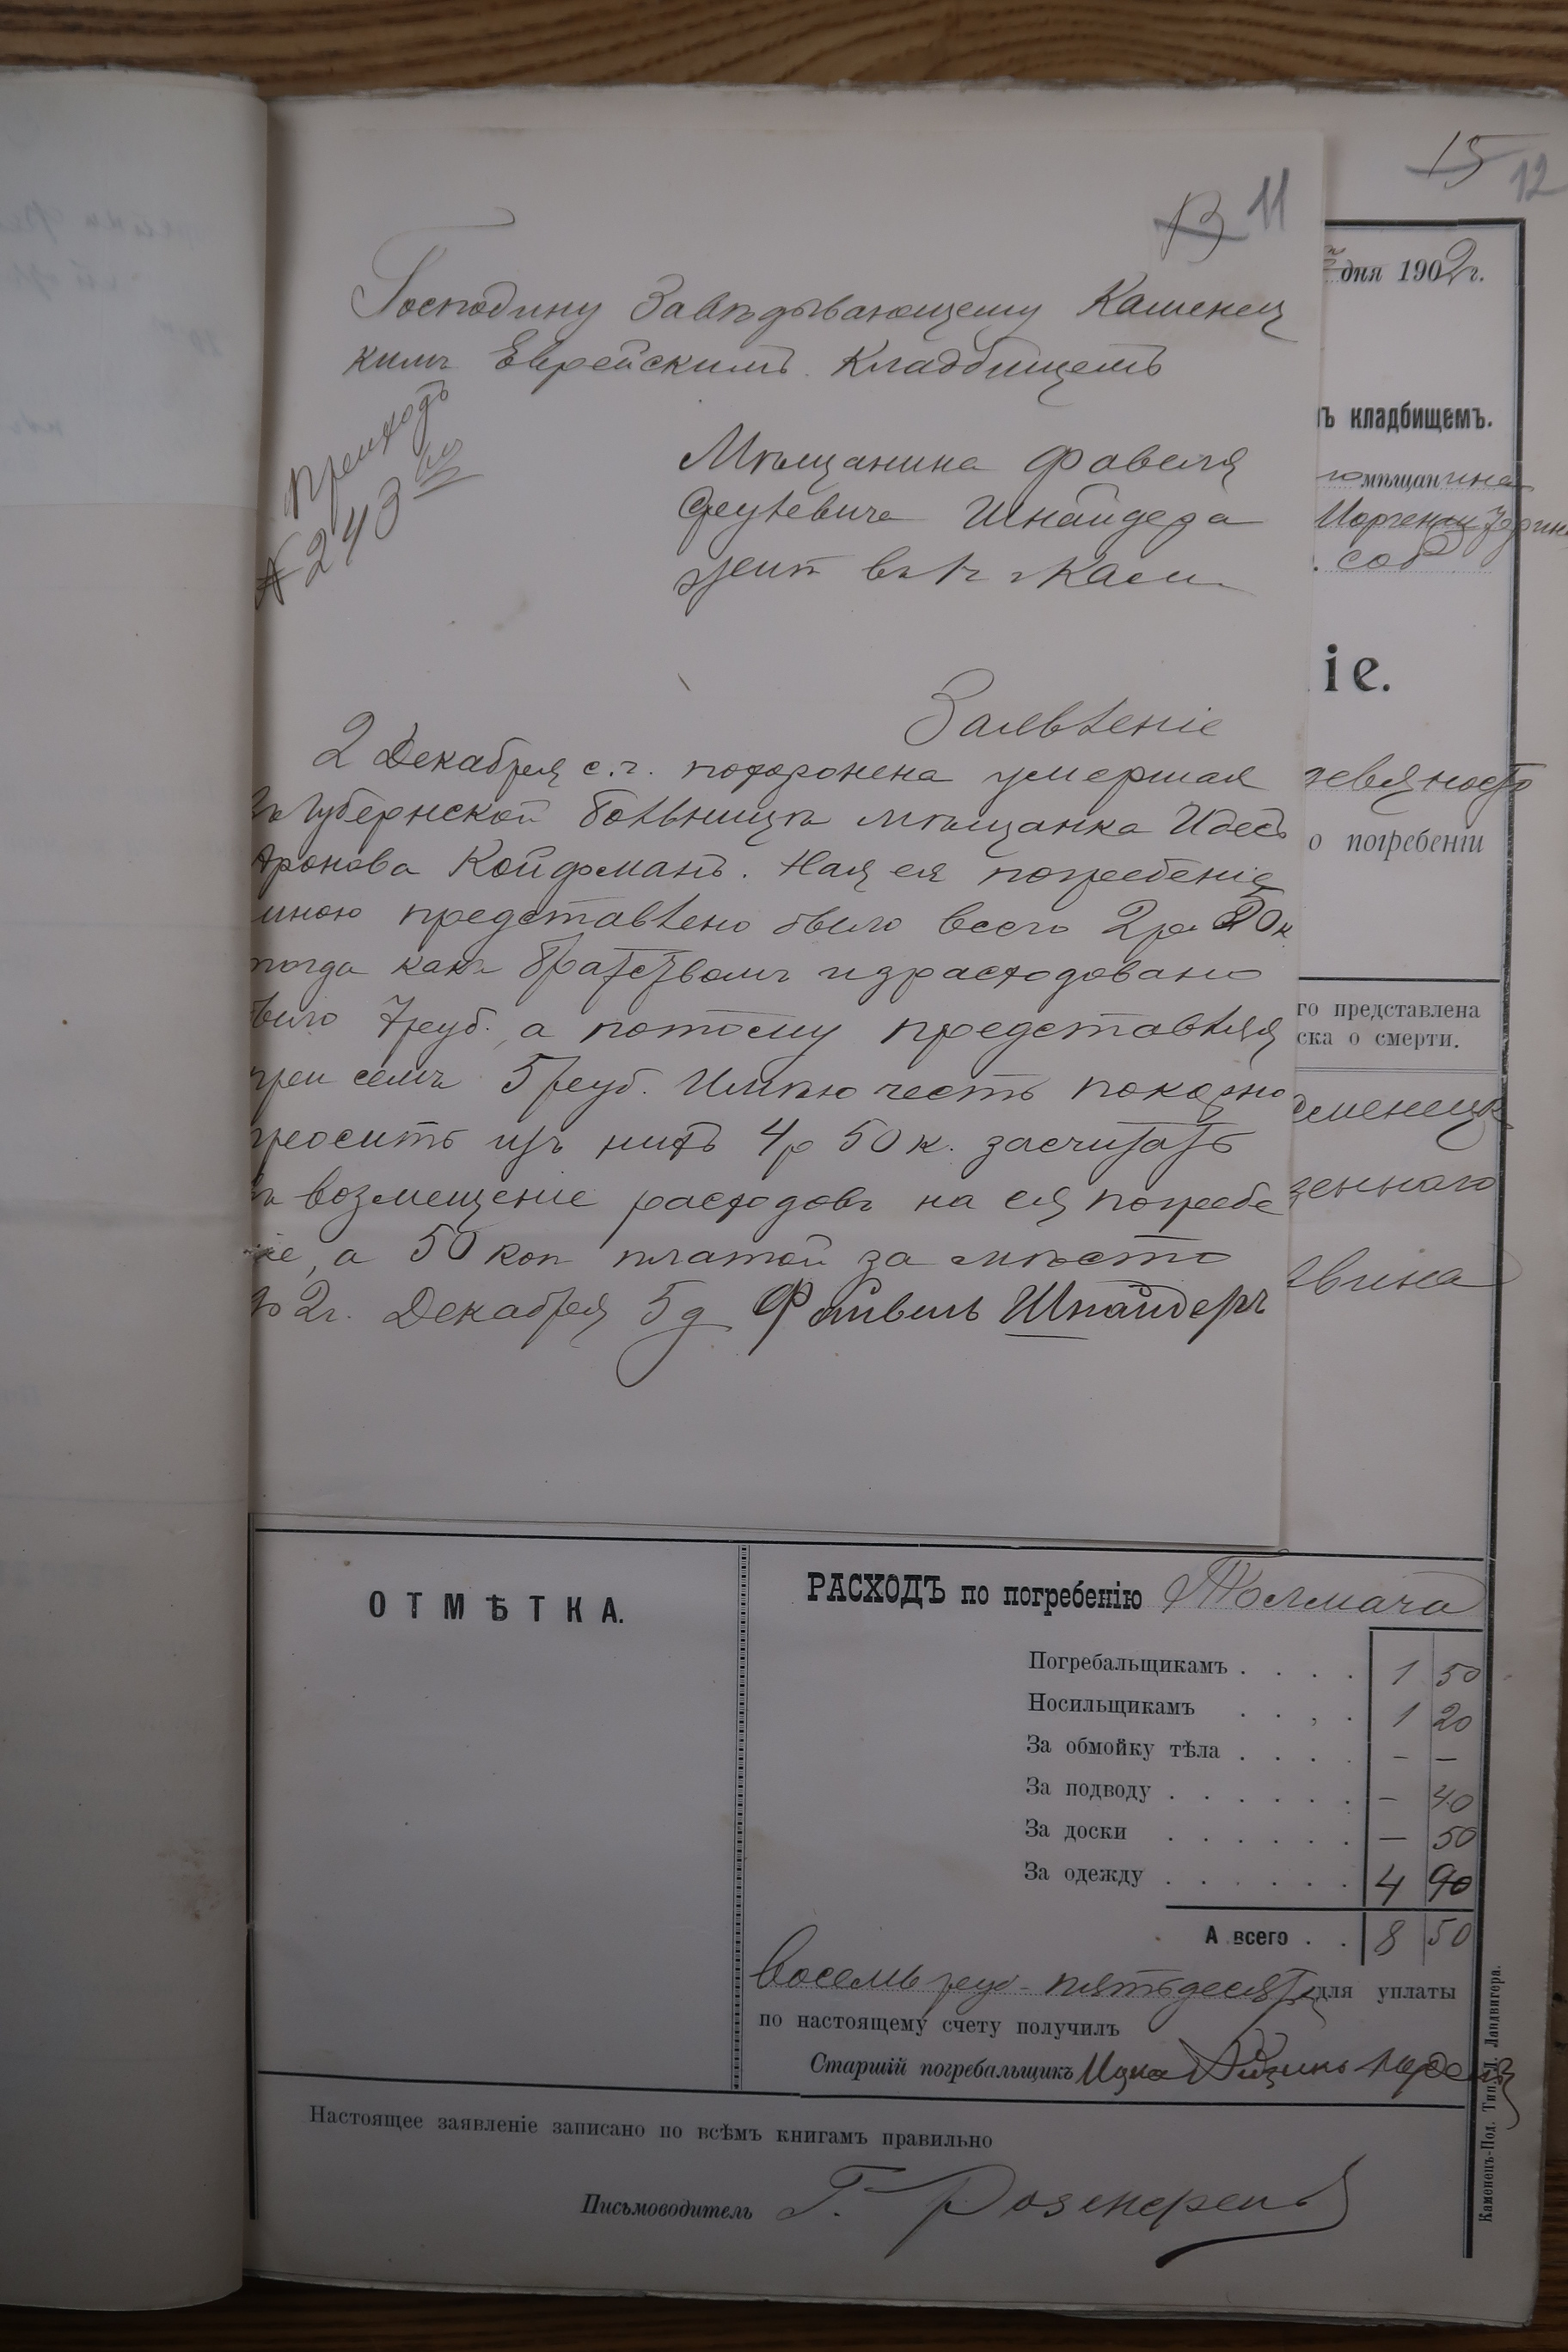 15 12
13 11
дня 1902 г.
Господину Завѣдывающему Каменец
кимъ Еврейскимъ Кладбищемъ
Приходъ
№ 243
ъ кладбищемъ.
Мѣщанина Фавеля
Шнайдера
жит въ г Кам
мѣщанина
Заявленіе
іе.
2 Декабря с.г. похоронена умершая
въ Губернской больницѣ мѣщанка Идесъ
Аронова Койфманъ. На ея погребеніе
мною представлено было всего 2 р 20 к
тогда какъ братствомъ израсходовано
было 7 руб., а потому представляя
при семъ 5 руб. Имѣю честь покорно
просить изъ нихъ 4 р 50 к. засчитать
въ возмещеніе расходовъ на ея погребе
ніе, а 50 коп платой за мѣсто
2 г. Декабря 5 д Файвель Шнайдеръ
девяносто
о погребеніи
го представлена
ска о смерти.
аменецк
ОТМѢТКА.
РАСХОДЪ по погребенію Толмача
Погребальщикамъ . . . . 1 50
Носильщикамъ . . , . 1 20
За обмойку тѣла . . . . – –
За подводу . . . . . . – 40
За доски . . . . . . – 50
За одежду . . . . . . 4 90
А всего . . 8 50
восемь руб. пятьдесят для уплаты
по настоящему счету получилъ
Старшій погребальщикъ Ицко
Настоящее заявленіе записано по всѣмъ книгамъ правильно
Письмоводитель Г. Розенкренъ
Каменецъ-Под. Тип. Л. Ландвигера.